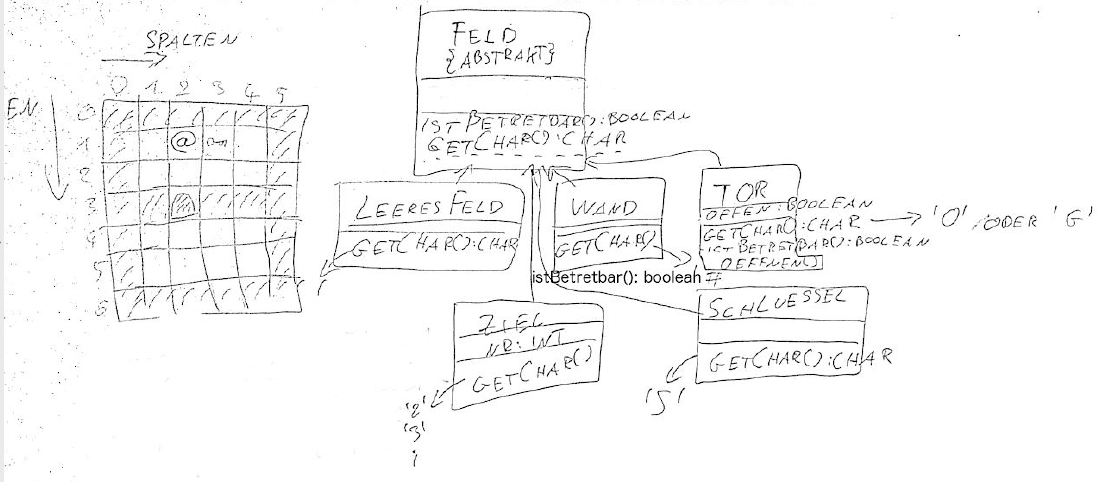 SPALTEN
EN
0 1 2 3 4 5
0
1 @
2
3
4
5
6
FELD
{ABSTRAKT}
ISTBETRETBAR():BOOLEAN
GETCHAR():CHAR
LEERESFELD
GETCHAR():CHAR
WAND
GETCHAR()
istBetretbar(): boolean #
TOR
OFFEN:BOOLEAN
GETCHAR():CHAR → 'O' ODER 'G'
ISTBETRETBAR():BOOLEAN
OEFFNEN()
ZIEL
NR: INT
GETCHAR()
'2'
'3'
SCHLUESSEL
GETCHAR():CHAR
'S'